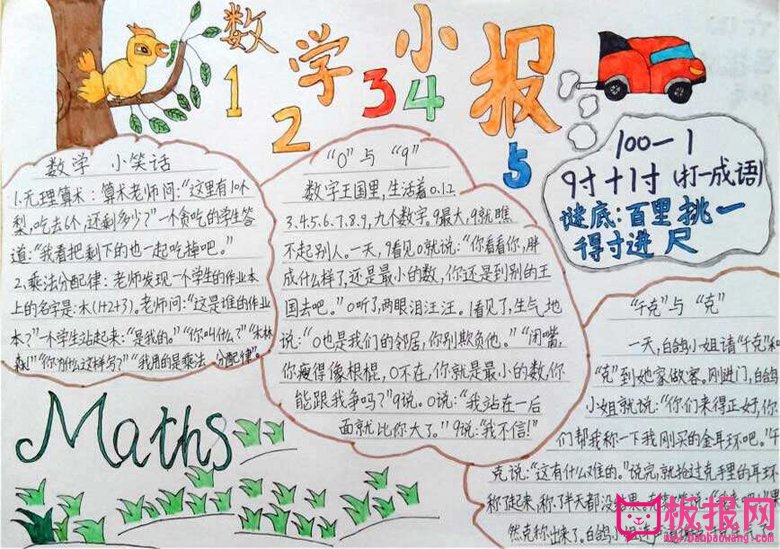 数学小报
1 2 3 4 5
数学 小笑话
1.无理算术：算术老师问：“这里有10个
梨，吃去6个，还剩多少？”一个贪吃的学生答
道：“我看把剩下的也一起吃掉吧。”
2、乘法分配律：老师发现一个学生的作业本
上的名字是：木(1+2+3)。老师问：“这是谁的作业
本？”一个学生站起来：“是我的。”“你叫什么？”“木林
森！”“你为什么这样写？”“我用的是乘法 分配律”。
“0”与“9”
数学王国里，生活着0.1.2.
3.4.5.6.7.8.9，九个数字。9最大，9就瞧
不起别人。一天，9看见0就说：“你看看你，胖
成什么样了，还是最小的数，你还是到别的王
国去吧。”0听了，两眼泪汪汪。1看见了，生气地
说：“0也是我们的邻居，你别欺负他。”“闭嘴，
你瘦得像根棍，0不在，你就是最小的数，你
能跟我争吗？”9说。0说：“我站在一后
面就比你大了。”9说：“我不信！”
100—1
9寸+1寸(打一成语)
谜底：百里挑一
得寸进尺
“千克”与“克”
一天，白鸽小姐请“千克”和
“克”到她家做客。刚进门，白鸽
小姐就说：“你们来得正好，你
们帮我称一下我刚买的金耳环吧。”千
克说：“这有什么难的。”说完，就抢过克手里的耳环
称了起来，称了半天都没
然克称出来了。白鸽小姐
Maths
板报网
www.banbaowang.com